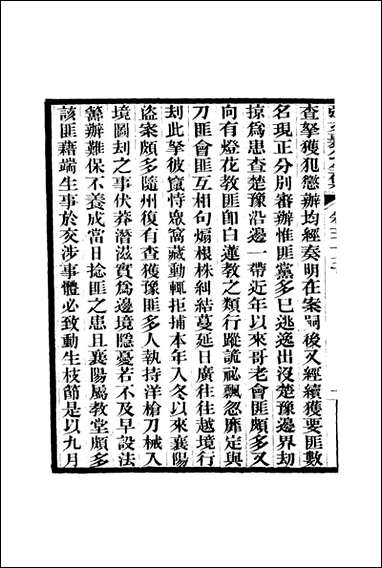 查拏獲犯懲辦均經奏明在案嗣後又經續獲要匪數
名現正分別審辦惟匪黨多已逃逸出沒楚豫邊界劫
掠爲患查楚豫沿邊一帶近年以來哥老會匪頗多又
向有燈花教匪卽白蓮教之類行蹤詭祕飄忽靡定與
刀匪會匪互相句煽根株糾結蔓延日廣往往越境行
劫此拏彼竄恃衆窩藏動輒拒捕本年入冬以來襄陽
盜案頗多隨州復有查獲豫匪多人執持洋槍刀械入
境圖劫之事伏莽潛滋實爲邊境隱憂若不及早設法
籌辦難保不養成當日捻匪之患且襄陽屬教堂頗多
該匪藉端生事於交涉事體必致動生枝節是以九月